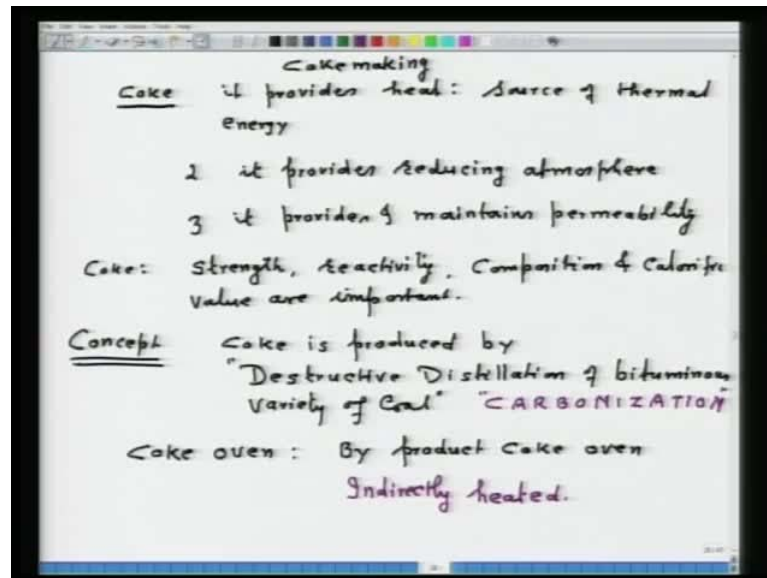 Cokemaking
Coke it provides heat: Source of thermal
energy
2 it provides reducing atmosphere
3 it provides & maintains permeability
Coke: Strength, reactivity, Composition & Calorific
value are important.
Concept Coke is produced by
"Destructive Distillation of bituminous
variety of Coal" "CARBONIZATION"
Coke oven: By product Coke oven
Indirectly heated.